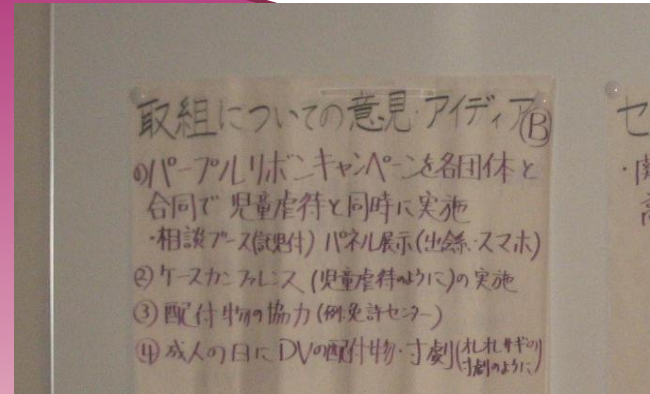 取組についての意見・アイディア Ⓑ
①パープルリボンキャンペーンを各団体と
合同で児童虐待と同時に実施
・相談ブース(託児付) パネル展示(出会系・スマホ)
②ケースカンファレンス(児童虐待のように)の実施
③配付物の協力(例.免許センター)
④成人の日にDVの配付物・寸劇(オレオレサギの
寸劇のように)
セ